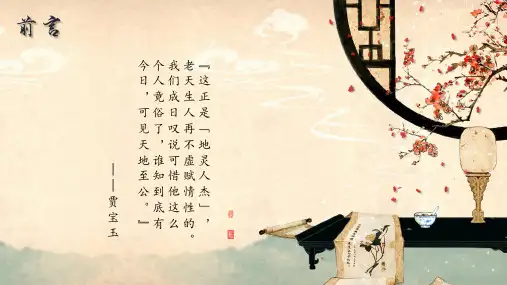 前言
『这正是「地灵人杰」，
老天生人再不虚赋情性的。
我们成日叹说可惜他这么
个人竟俗了，谁知到底有
今日，可见天地至公。』
——贾宝玉